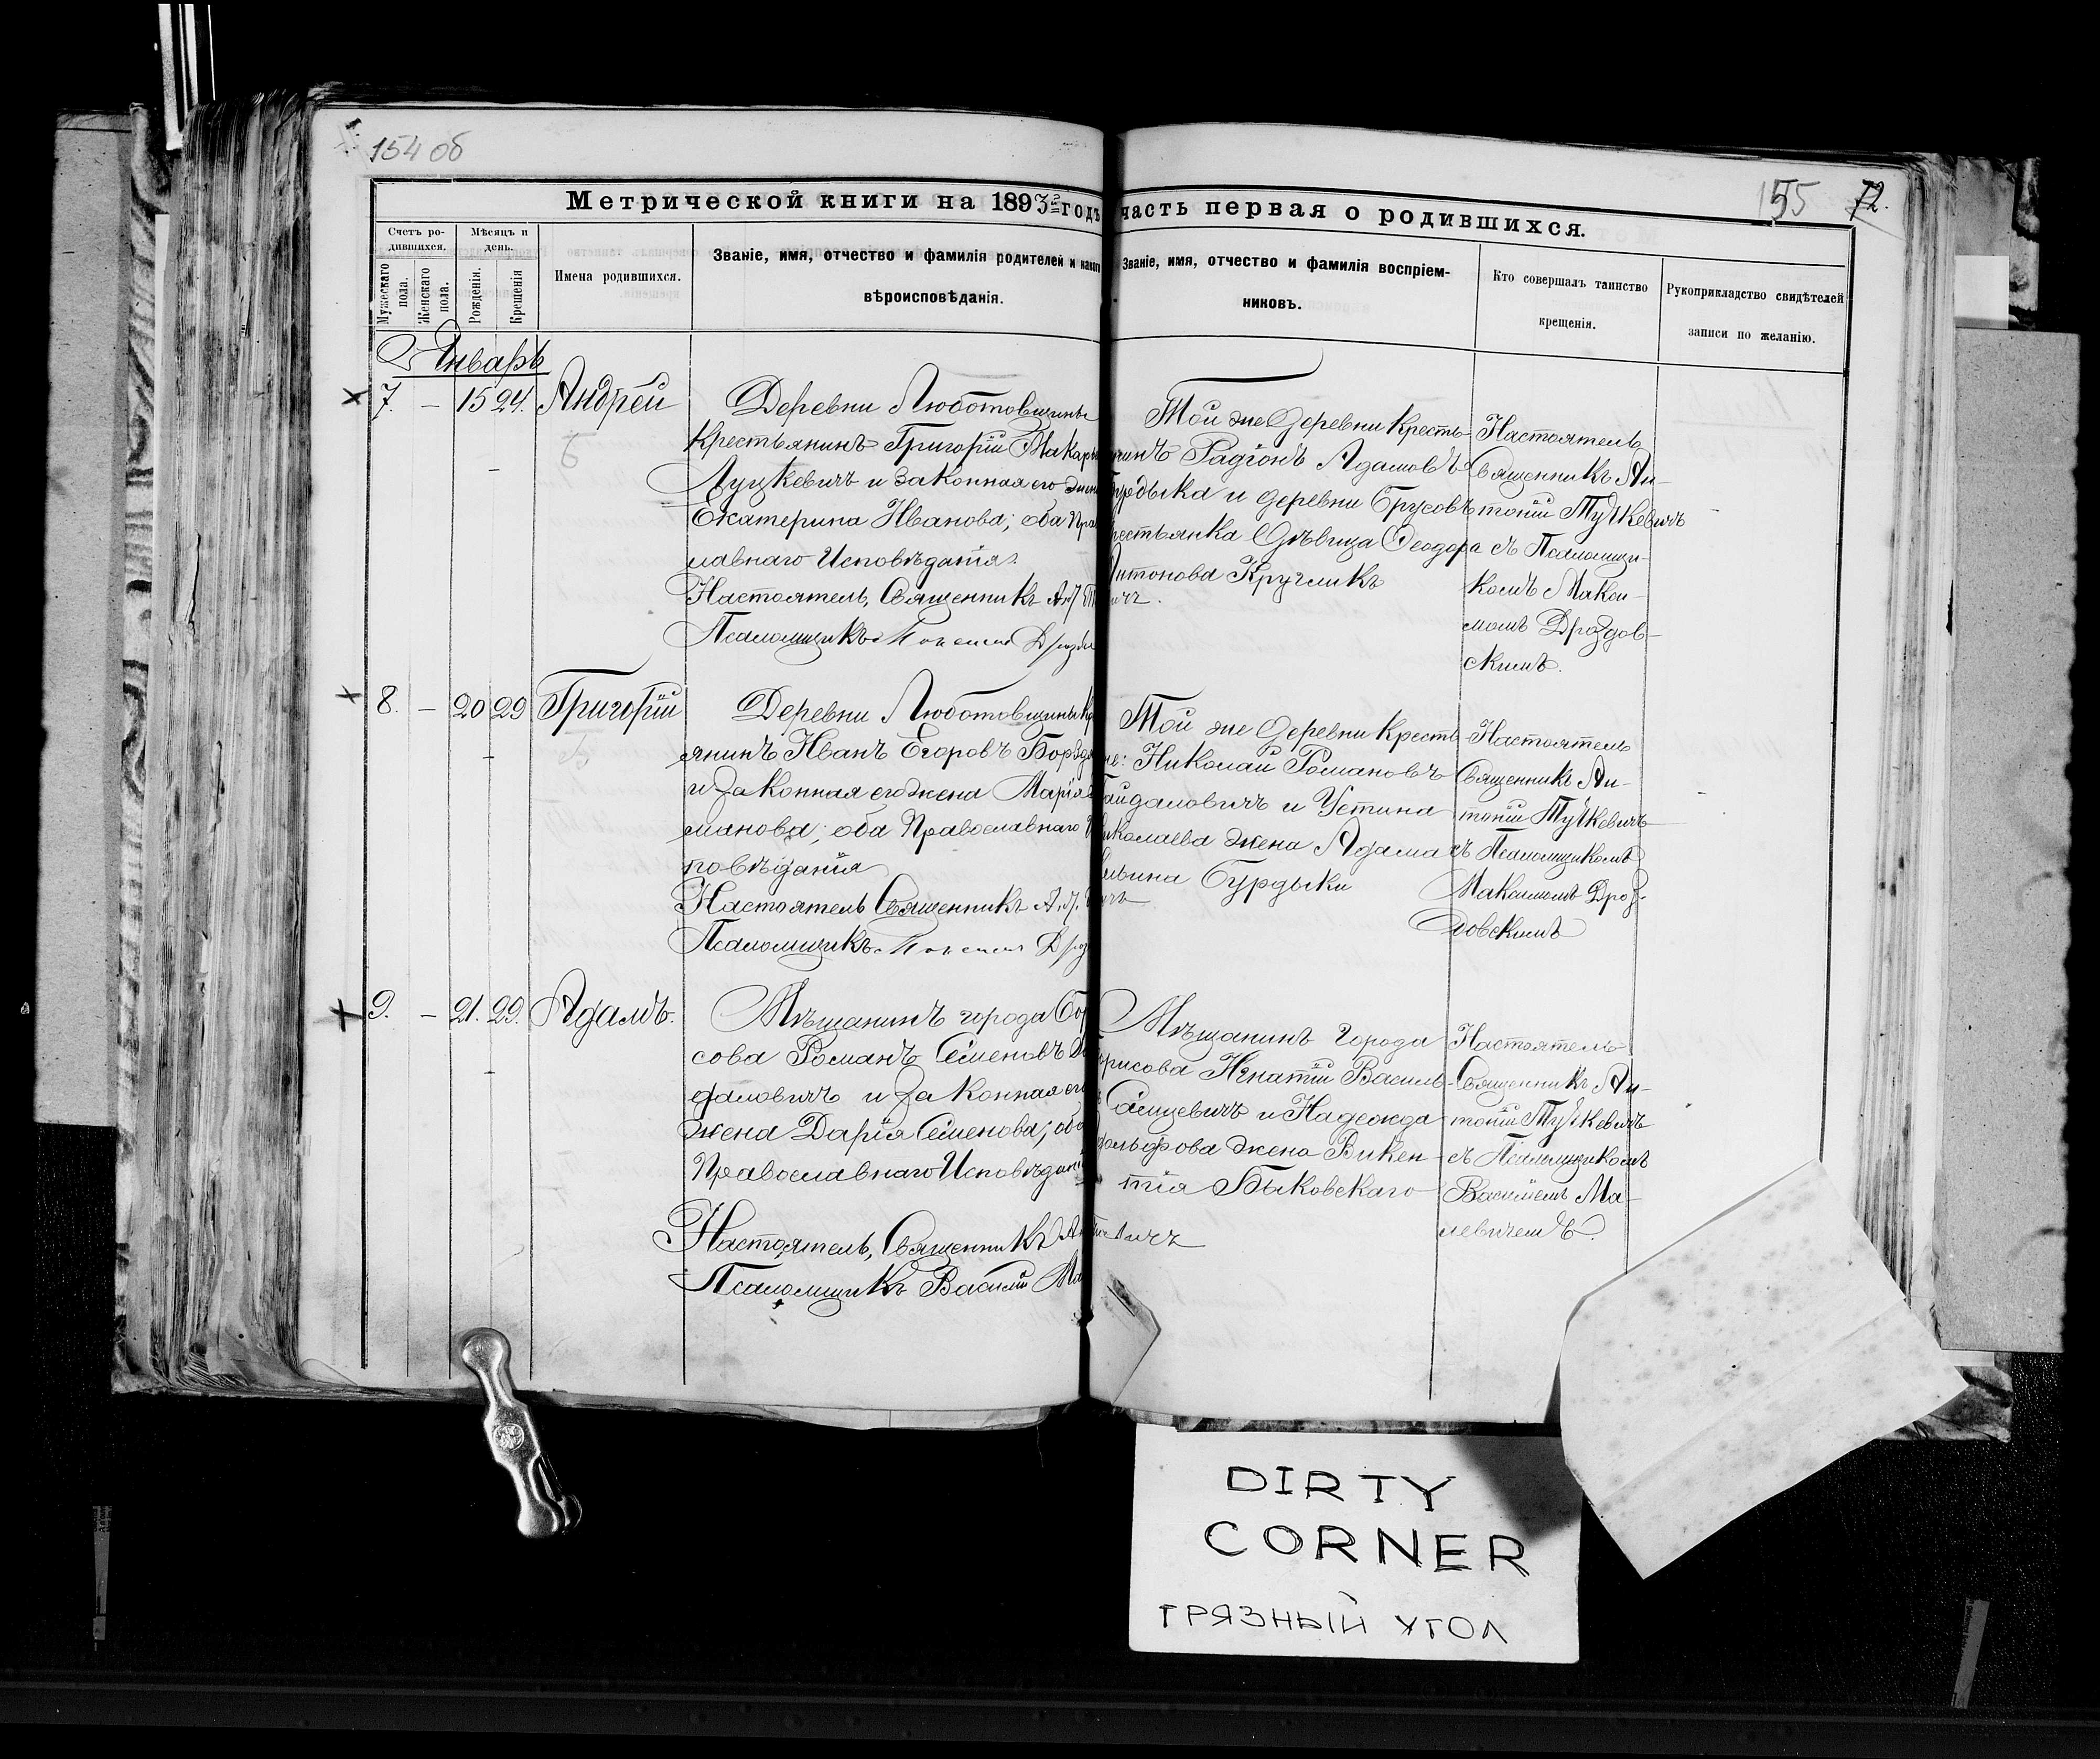 154 об
155 72.
Метрической книги на 1893й годъ
часть первая о родившихся.
Счетъ родившихся.
Мужескаго пола.
Женскаго пола.
Мѣсяцъ и день.
Рожденія.
Крещенія
Имена родившихся.
Званіе, имя, отчество и фамилія родителей и какого
вѣроисповѣданія.
Званіе, имя, отчество и фамилія воспріем-
никовъ.
Кто совершалъ таинство
крещенія.
Рукоприкладство свидѣтелей
записи по желанію.
Январь
7. — 15 24. Андрей
Деревни Люботовщины
крестьянинъ Григорій Макарь
Луцкевичъ и законная его жена
Екатерина Иванова; оба Пра
лавнаго Исповѣданія.
Настоятель, Священникъ Ант
Псаломщикъ Максим Дрозд
Той же деревни кресть-
янинъ Радіонъ Адамовъ
Бурдыка и деревни Брусовъ
крестьянка дѣвица Ѳеодора
Антонова Кругликъ
ичъ.
Настоятель
Священникъ Ан-
тоній Туткевичъ
съ Псаломщи-
комъ Макси-
момъ Дроздов-
скимъ.
8. — 20 29 Григорій
Деревни Люботовщины Кр
янинъ Иванъ Егоровъ
и законная его жена Марія
манова; оба Православнаго
повѣданія
Настоятель Священникъ Ант.
Псаломщикъ Максим Дрозд
Той же деревни кресть-
не: Николай Романовъ
Гайдаловичъ и Устина
Николаева жена Адама
Бурдыки
ичъ
Настоятель
Священникъ Ан-
тоній Туткевичъ
съ Псаломщикомъ
Максимомъ Дроз-
довскимъ
9. — 21. 29. Адамъ.
Мѣщанинъ города Бор
сова Романъ Семеновъ
даловичъ и законная его
жена Дарія Семенова; оба
Православнаго Исповѣдані
Настоятель, Священникъ Ант
Псаломщикъ Василій Ма
Мѣщанинъ города
Борисова Игнатій Василь-
и Надежда
жена Викен-
тія Быковскаго
вичъ
Настоятель
Священникъ Ан-
тоній Туткевичъ
съ Псаломщикомъ
Василіемъ Ма-
левичемъ.
DIRTY
CORNER
ГРЯЗНЫЙ УГОЛ